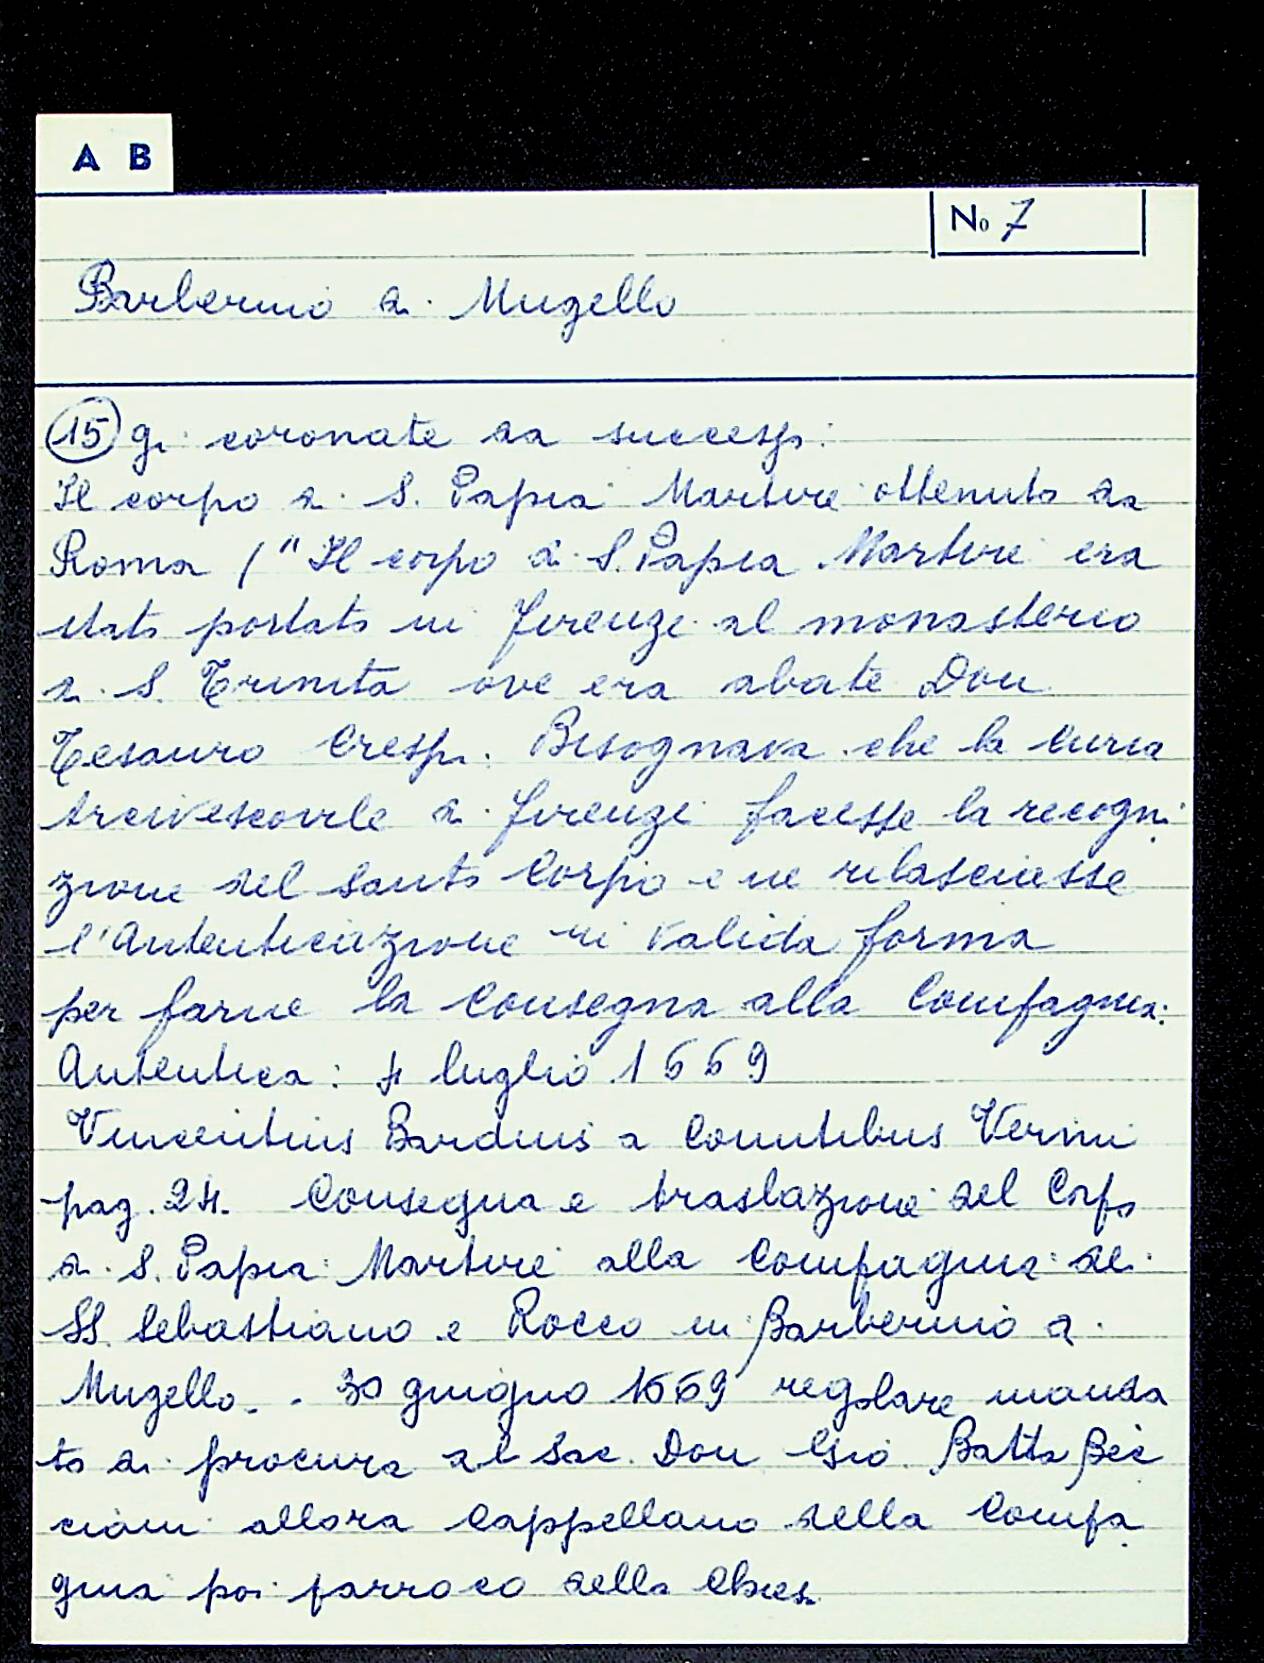 A B
No 7
Barberino di Mugello
15 gi coronate da success:
Il corpo di S. Papia Martire ottenuto da
Roma ("Il corpo di S. Papia Martire era
stato portato in Firenze al monasterio
di S. Trinita ove era abate Don
Tesauro Crespi. Bisognava che la Curia
Arcivescovile di Firenze facesse la recogni
zione del Santo Corpo e ne rilasciasse
l'Autenticazione in valida forma
per farne la Consegna alla Compagnia:
Autentica: 4 luglio 1669
Vincentius Bardius a Comitibus Verni
pag. 24. Consegna e traslazione del Corpo
di S. Papia Martire alla Compagnia dei
SS. Sebastiano e Rocco in Barberino di
Mugello. - 30 giugno 1669 regolare manda
to di procura al Sac. Don Gio. Batta Bec
ciani allora Cappellano della Compa
gnia poi parroco della Chies